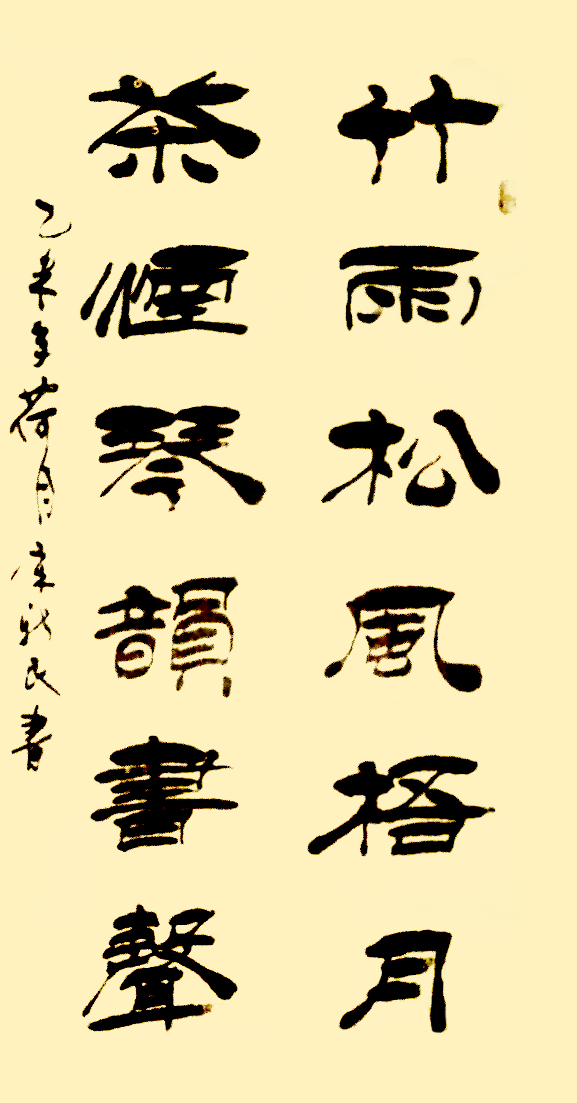 竹雨松風梧月
茶煙琴韻書聲
乙未年荷月康新民書